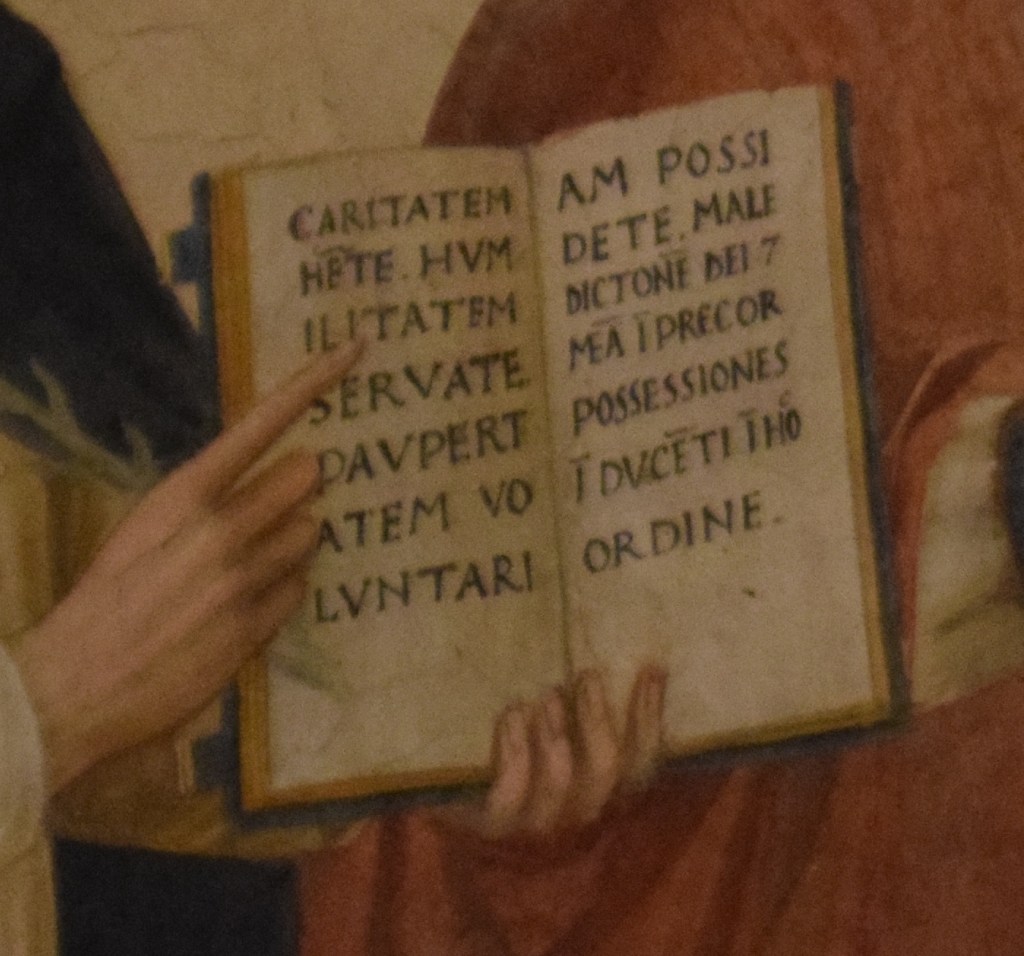 CARITATEM
HE̅TE. HVM
ILITATEM
SERVATE.
PAVPERT
ATEM VO
LVNTARI
AM POSSI
DETE. MALE
DICTONE̅ DEI 7
MEĀ Ī PRECOR
POSSESSIONES
Ī DVCE̅TI Ī HO̊
ORDINE.